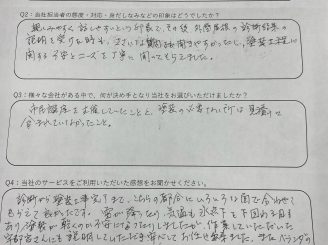 Q2：当社担当者の態度・対応・身だしなみなどの印象はどうでしたか？
親しみやすく話しやすいという印象で、その後外壁屋根の診断結果の
説明を受けた時も、ささいな質問も聞きやすかったし、塗装工程に
関する不安とニーズを丁寧に聞いてもらえました。
Q3：様々な会社がある中で、何が決め手となり当社をお選びいただけましたか？
市民講座を主催していたことと、塗装の必要ない所は見積りに
含まれていなかったこと。
Q4：当社のサービスをご利用いただいた感想をお聞かせください。
診断から塗装と事完了まで、こちらの都合にいろいろな面で合わせて
もらえて助かりました。 雪が降ったり、気温も氷点下を下回る日も
あり、塗膜が乾くのか不安になったりしましたが、作業していただいた
宇都宮さんにも説明していただき安心してお任せ出来ました。またベランダの